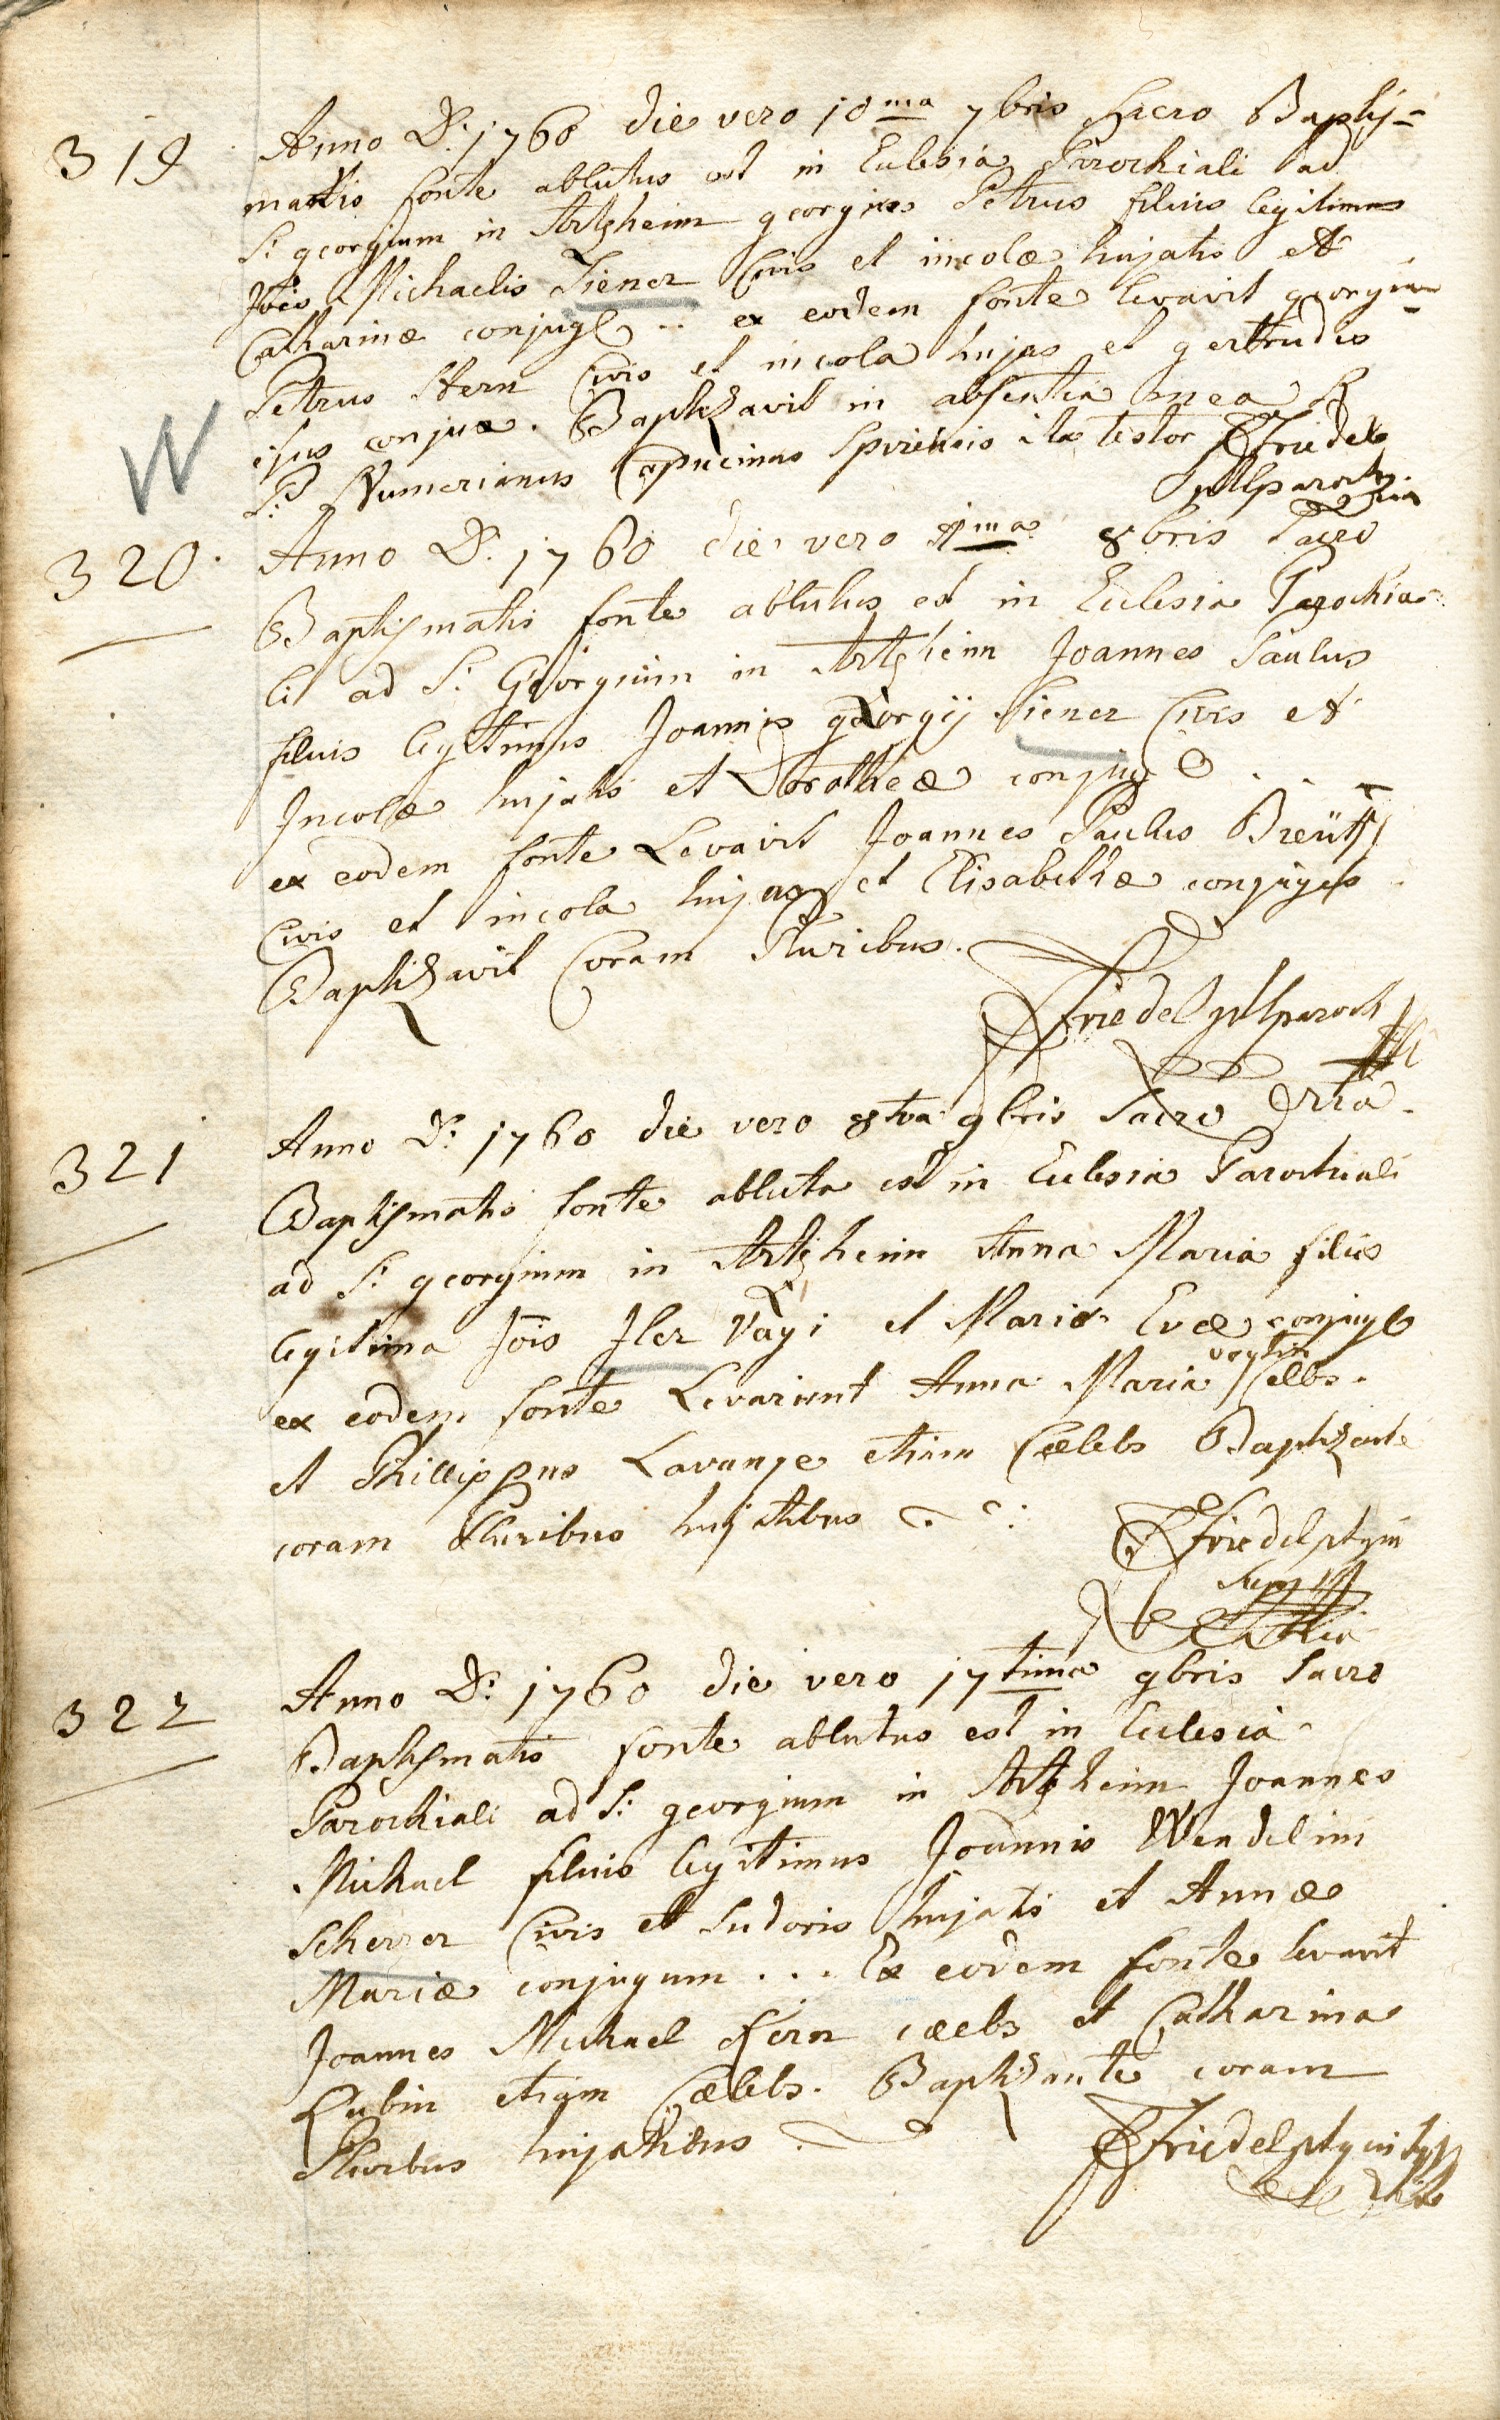 319 Anno D: 1760 die vero 10ma 7bris sacro Baptis=
matis fonte ablutus est in Eclesia Parochiali ad
S: georgium in Artzheim georgius Petrus filius legitimus
Jois Michaelis Tiener Civis et incolæ hujatis et
Catharinæ conjug .. ex eodem fonte levavit georgius
Petrus Stern Civis et incola hujas et gertrudis
W
ejus conjux. Baptizavit in absentia mea R
P: Numerianus Capucinus Spirensis ita testor Friedel
320. Anno D: 1760 die vero 1ma 8bris Sacro
Baptismatis fonte ablutus est in Eclesia Parochia
li ad S: Georgium in Artzheim Joannes Paulus
filius legittimus Joannis georgij Tiener Civis et
Incolæ hujatis et Dorotheæ conjug . . .
ex eodem fonte Levavit Joannes Paulus
Civis et incola hujas et Elisabethæ conjuges
Baptizavit Coram Pluribus.
Friedel
321 Anno D: 1760 die vero 8tva 9bris Sacro
Baptismatis fonte abluta est in Eclesia Parochiali
ad S: georgium in Artzheim Anna Maria filia
legitima Jois Iler Vagi et Mariæ Evæ conjug
ex eodem fonte Levarunt Anna Maria Celbs.
et Phillippus Lavange etiam Cælebs Baptizante
coram Pluribus hujatibus
Friedel
322 Anno D: 1760 die vero 17tima 9bris Sacro
Baptismatis fonte ablutus est in Eclesia
Parochiali ad S: georgium in Artzheim Joannes
Michael filius legitimus Joannis Wendelini
Scherrer Civis et Sudoris hujatis et Annæ
Mariæ conjugum ... Ex eodem fonte levavit
Joannes Michael Kern cælbs et Catharina
Rubin etiam Cælebs. Baptizante coram
Pluribus hujatibus.
Friedel